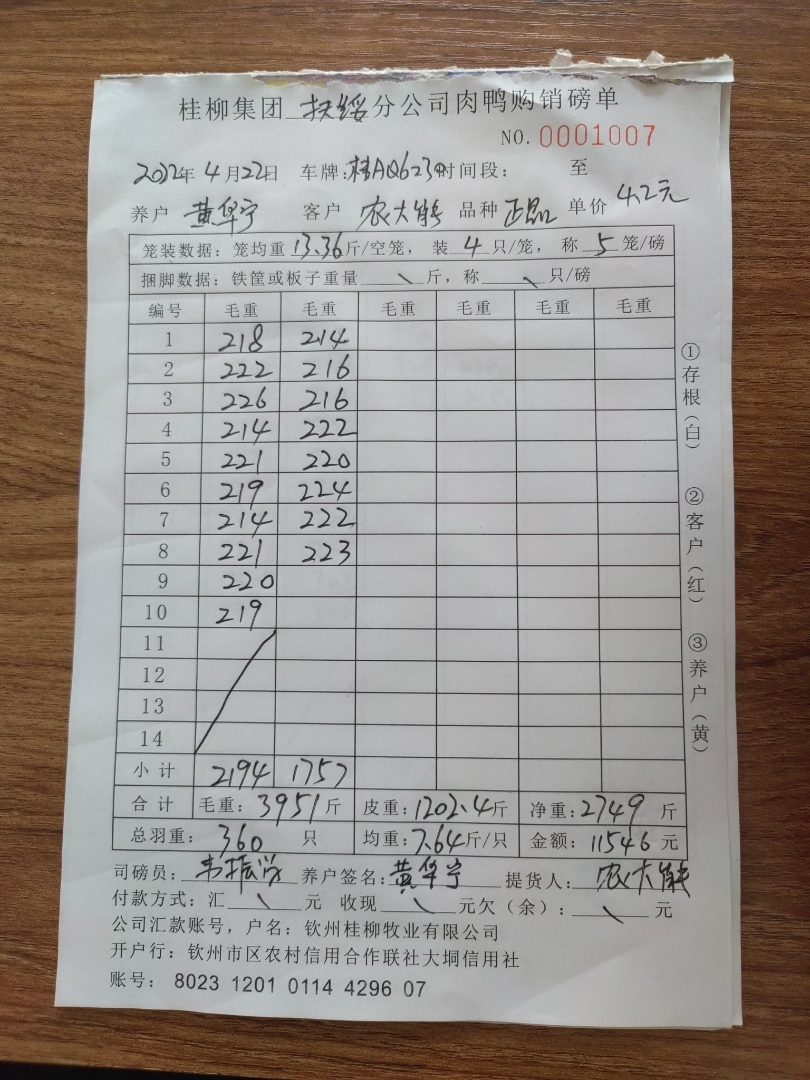 桂柳集团 扶绥 分公司肉鸭购销磅单
NO. 0001007
2022年 4月22日 车牌:桂AQ623 时间段: 至
养户 黄华宁 客户 农大能 品种 正品 单价 4.2元
笼装数据: 笼均重 13.36 斤/空笼, 装 4 只/笼, 称 5 笼/磅
捆脚数据: 铁筐或板子重量 \ 斤, 称 \ 只/磅
编号 毛重 毛重 毛重 毛重 毛重 毛重
1 218 214
2 222 216
3 226 216
4 214 222
5 221 220
6 219 224
7 214 222
8 221 223
9 220
10 219
11
12
13
14
小计 2194 1757
合计 毛重: 3951斤 皮重: 1202.4斤 净重: 2749 斤
总羽重: 360 只 均重: 7.64斤/只 金额: 11546 元
司磅员: 韦振 养户签名: 黄华宁 提货人: 农大能
付款方式: 汇 \ 元 收现 \ 元欠(余): \ 元
公司汇款账号, 户名: 钦州桂柳牧业有限公司
开户行: 钦州市区农村信用合作联社大垌信用社
账号: 8023 1201 0114 4296 07
①存根(白)
②客户(红)
③养户(黄)